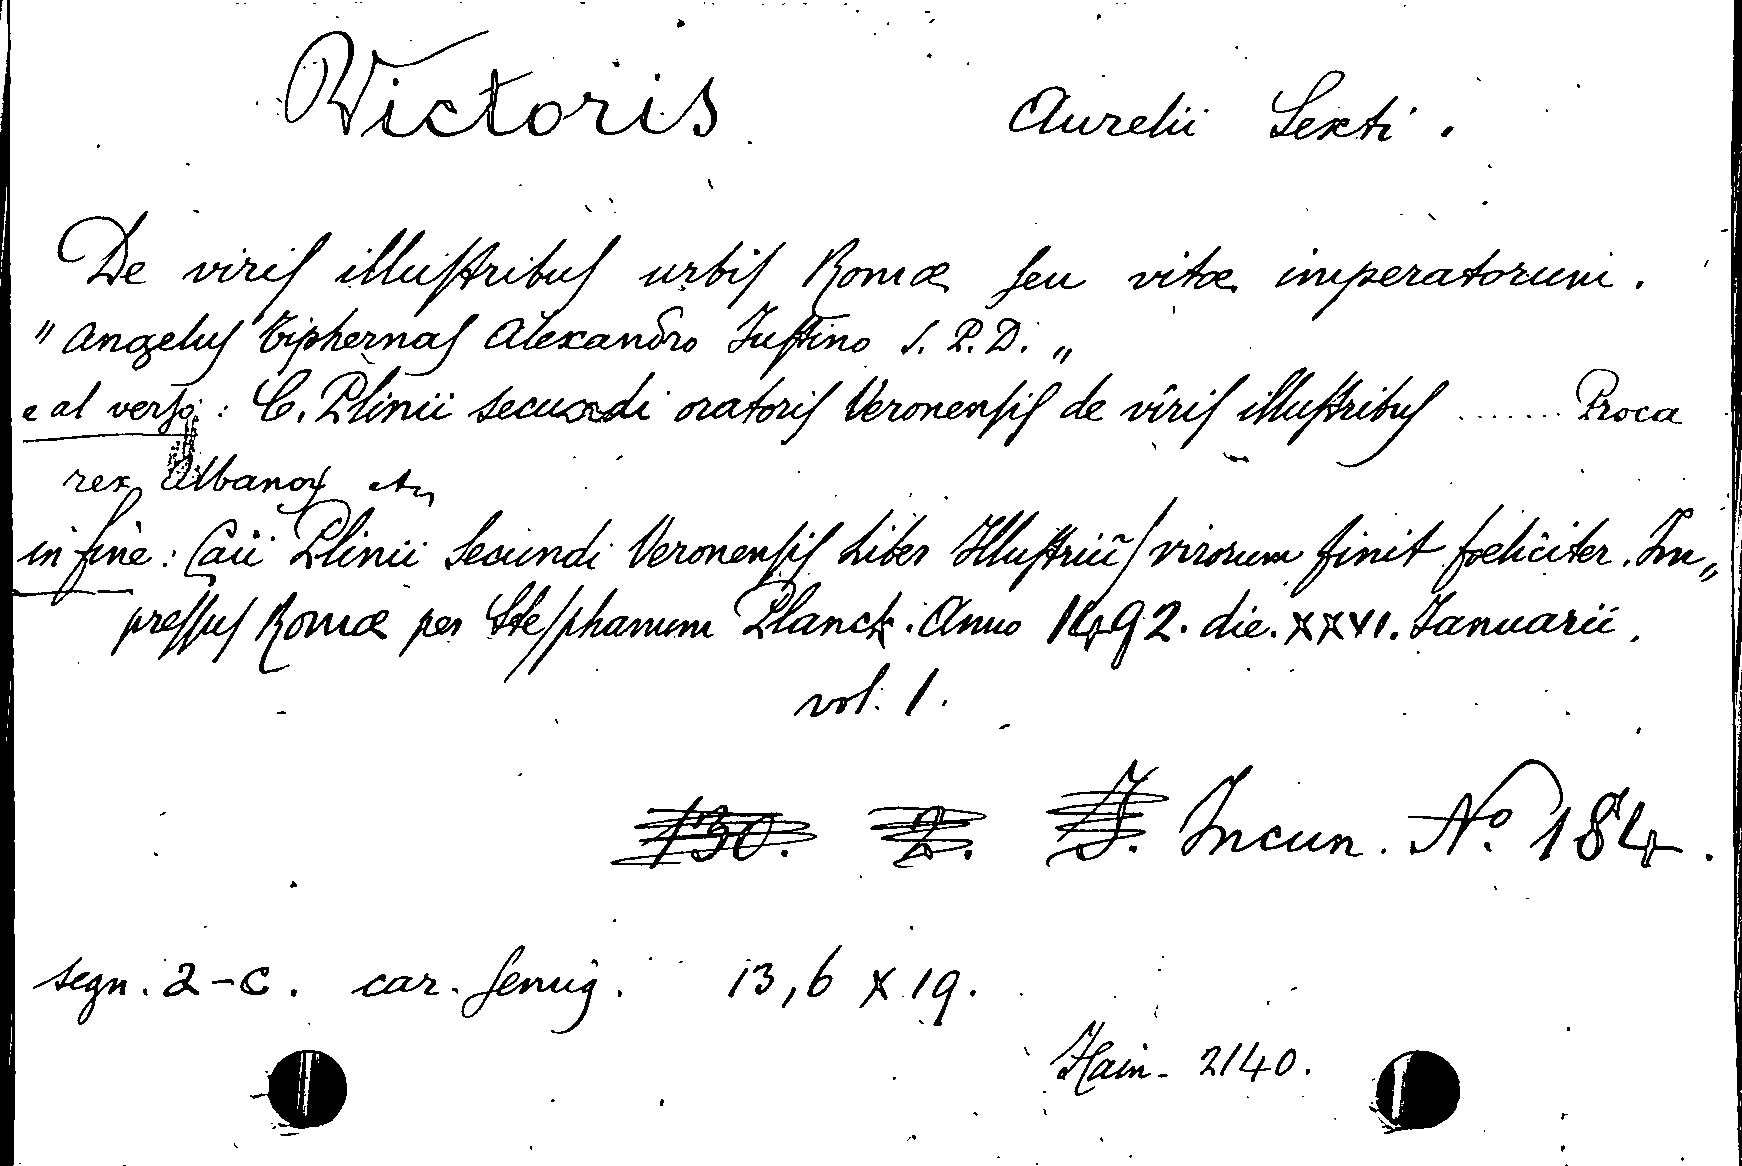 Victoris Aurelii Sexti.
De viris illustribus urbis Romæ seu vitæ imperatorum.
" Angelus Tiphernas Alexandro Iustino S. P. D. "
e al verso: C. Plinii secundi oratoris Veronensis de viris illustribus ....... Proca
rex Albanoꝝ etc
in fine: Caii Plinii Secundi Veronensis Liber Illustriũ/virorum finit fœliciter. Im„
pressus Romæ per Stephanum Planck. Anno 1492. die. XXVI. Ianuarii.
vol. 1.
130. 2. J. Incun. No. 184.
segn. a-c. car. semig. 13,6 x 19.
Hain - 2140.